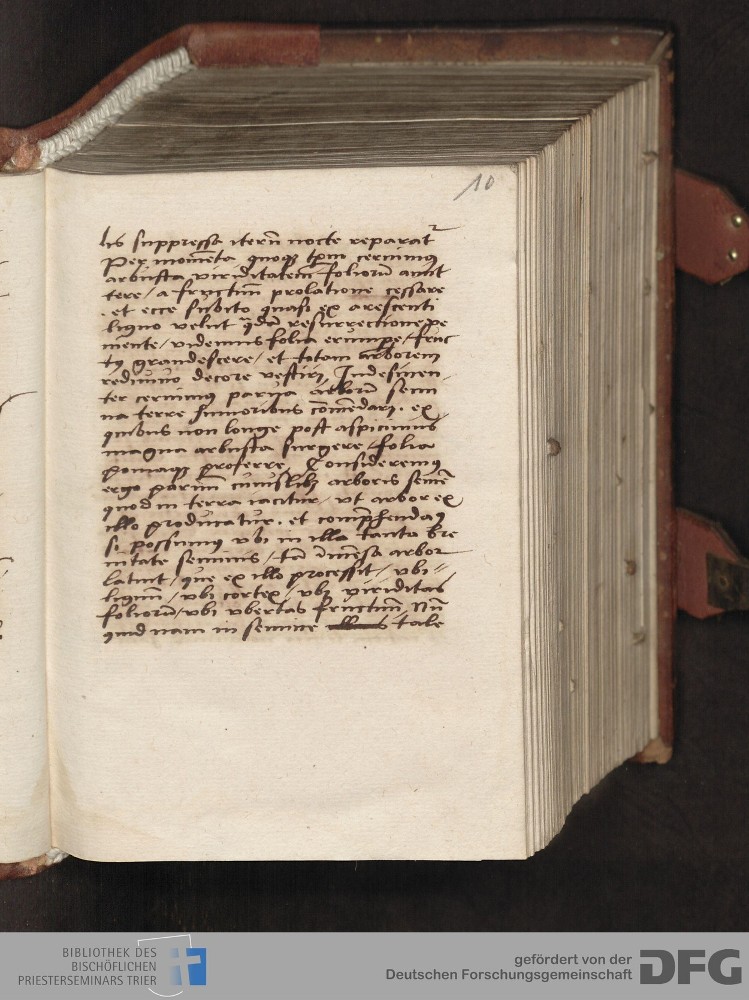 10
lis suppressa iterū nocte reparat᷑
Per momēta quoqꝫ tp̄m cernimꝰ
arbusta viriditatem foliorū amit
tere / a fructuū prolatione cessare
. et ecce subito quasi ex arescenti
ligno velut q̄dā resurrectione ve
niente / videmus folia erumpe / fruc
tꝰ grandescere / et totam arborem
rediuiuo decore vestiri, Indesinen
ter cernimꝰ parua arborū semi
na terre humoribus cōmēdari . ex
quibus non longe post aspicimus
magna arbusta surgere / folia
pomaqꝫ proferre, Consideremꝰ
ergo paruū cuiuslibꝫ arboris semē
quod in terra iacitur / vt arbor ex
illo producatur . et comp̄hendaꝰ
si possumꝰ vbi in illa tanta bre
uitate seminis / tā īmēsa arbor
latuit / que ex illo processit / vbi
lignū / vbi cortex / vbi viriditas
foliorū / vbi vbertas fructuū, Nū
quid nam in semine tale
BIBLIOTHEK DES
BISCHÖFLICHEN
PRIESTERSEMINARS TRIER
gefördert von der
Deutschen Forschungsgemeinschaft
DFG